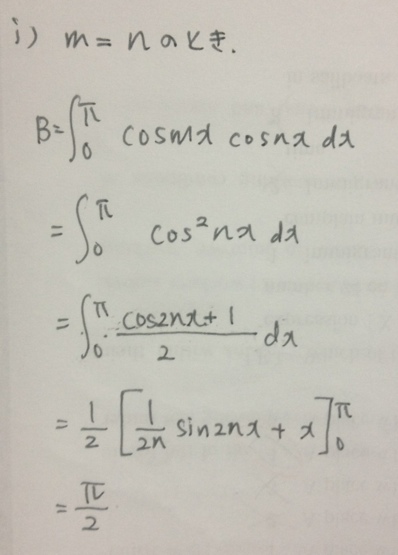 i) m = n のとき.
B = ∫₀^π cosmx cosnx dx
= ∫₀^π cos²nx dx
= ∫₀^π (cos2nx + 1)/2 dx
= 1/2 [1/2n sin2nx + x]₀^π
= π/2